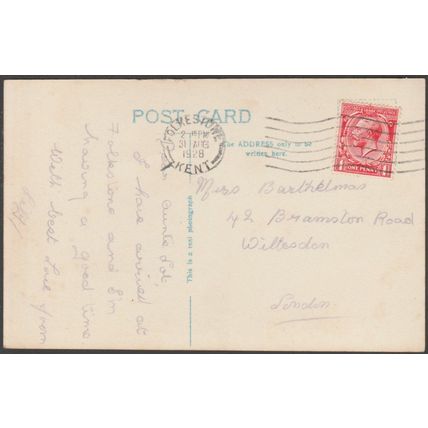 POST CARD
FOLKESTONE
2 15 PM
31 AUG
1928
KENT
The ADDRESS only to be
written here.
ONE PENNY
This is a real photograph
Dear Auntie Lot
I have arrived at
Folkestone and I'm
having a good time
With best Love from
Miss Barthelmas
42 Bramston Road
Willesdon
London